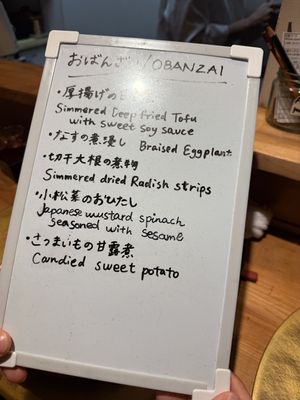 おばんざい/OBANZAI
・厚揚げの甘
Simmered Deep fried Tofu
with sweet soy sauce
・なすの煮浸し Braised Eggplant
・切干大根の煮物
Simmered dried Radish strips
・小松菜のおひたし
Japanese mustard spinach
seasoned with sesame
・さつまいも甘露煮
Candied sweet potato